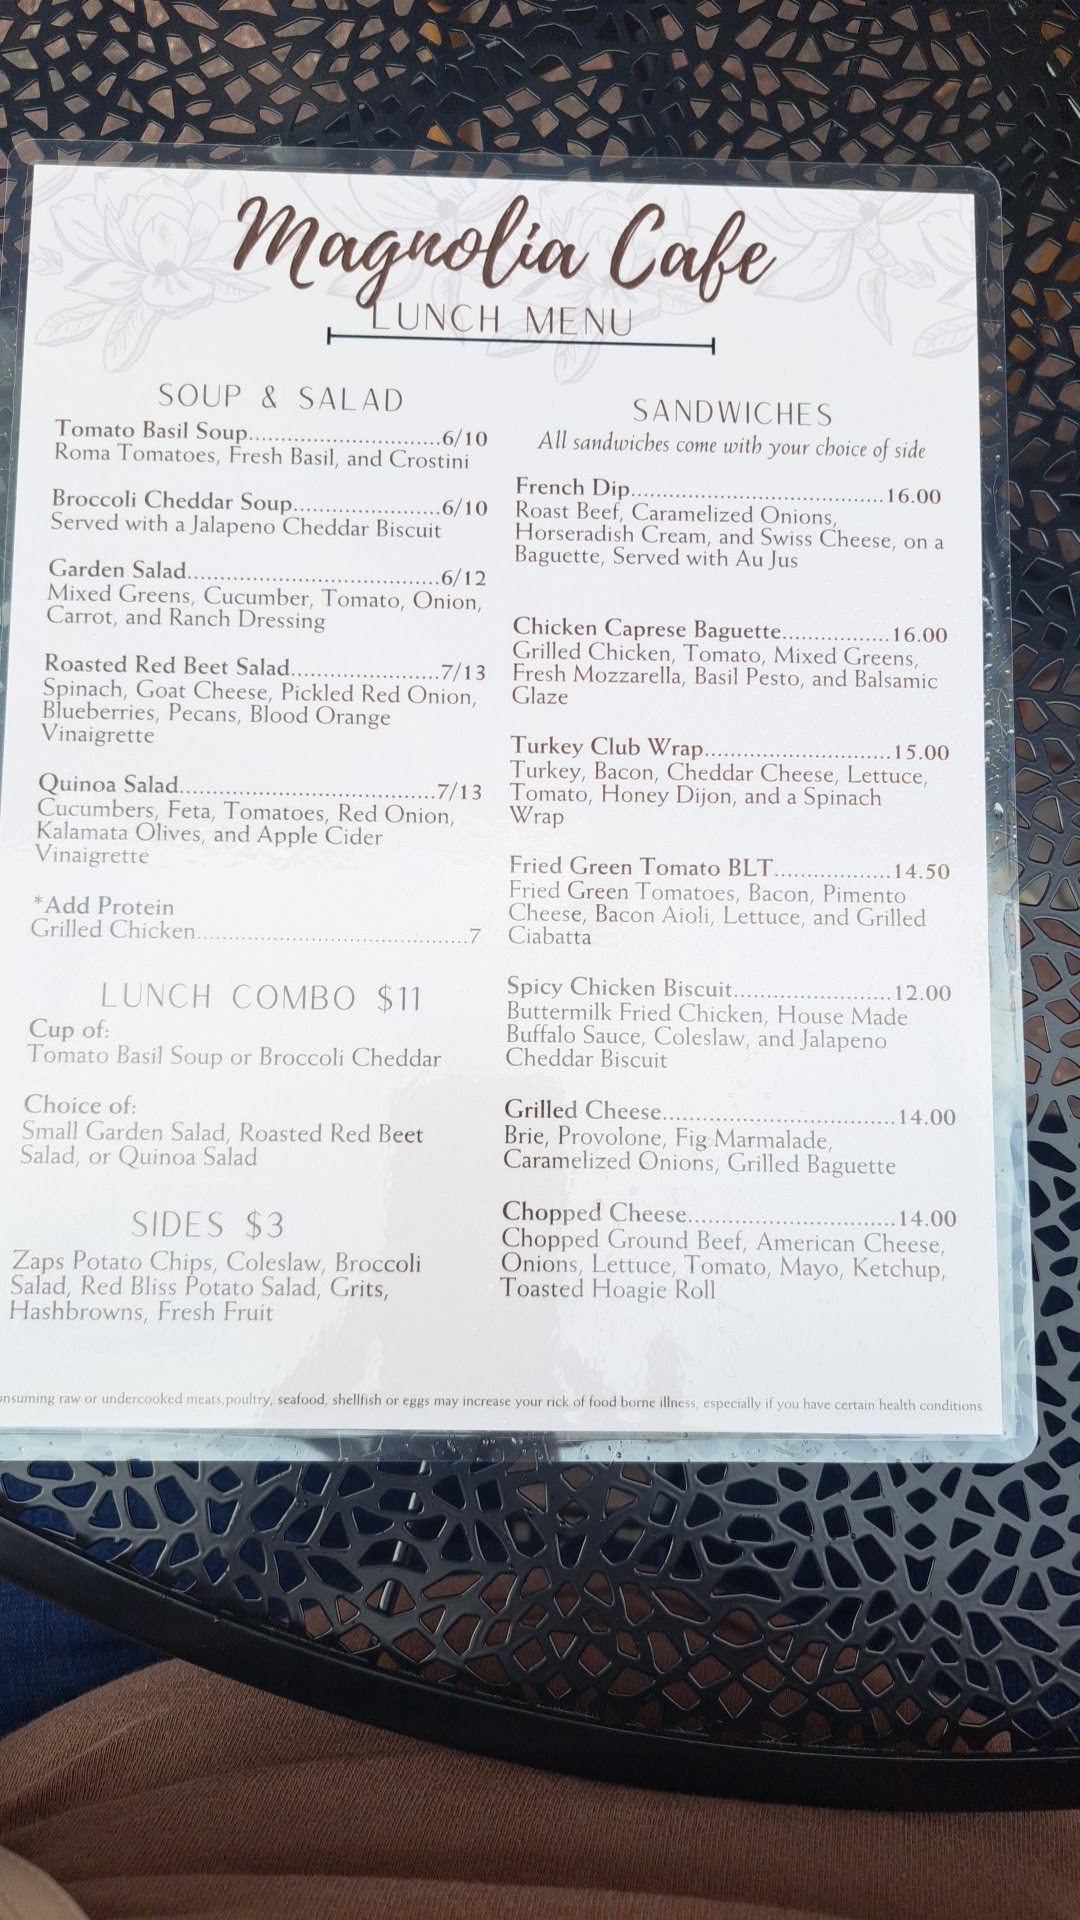 Magnolia Cafe
LUNCH MENU
SOUP & SALAD
Tomato Basil Soup..............................6/10
Roma Tomatoes, Fresh Basil, and Crostini
Broccoli Cheddar Soup.......................6/10
Served with a Jalapeno Cheddar Biscuit
Garden Salad.......................................6/12
Mixed Greens, Cucumber, Tomato, Onion,
Carrot, and Ranch Dressing
Roasted Red Beet Salad.......................7/13
Spinach, Goat Cheese, Pickled Red Onion,
Blueberries, Pecans, Blood Orange
Vinaigrette
Quinoa Salad.......................................7/13
Cucumbers, Feta, Tomatoes, Red Onion,
Kalamata Olives, and Apple Cider
Vinaigrette
*Add Protein
Grilled Chicken..........................................7
LUNCH COMBO $11
Cup of:
Tomato Basil Soup or Broccoli Cheddar
Choice of:
Small Garden Salad, Roasted Red Beet
Salad, or Quinoa Salad
SIDES $3
Zaps Potato Chips, Coleslaw, Broccoli
Salad, Red Bliss Potato Salad, Grits,
Hashbrowns, Fresh Fruit
SANDWICHES
All sandwiches come with your choice of side
French Dip.......................................16.00
Roast Beef, Caramelized Onions,
Horseradish Cream, and Swiss Cheese, on a
Baguette, Served with Au Jus
Chicken Caprese Baguette.................16.00
Grilled Chicken, Tomato, Mixed Greens,
Fresh Mozzarella, Basil Pesto, and Balsamic
Glaze
Turkey Club Wrap.............................15.00
Turkey, Bacon, Cheddar Cheese, Lettuce,
Tomato, Honey Dijon, and a Spinach
Wrap
Fried Green Tomato BLT..................14.50
Fried Green Tomatoes, Bacon, Pimento
Cheese, Bacon Aioli, Lettuce, and Grilled
Ciabatta
Spicy Chicken Biscuit........................12.00
Buttermilk Fried Chicken, House Made
Buffalo Sauce, Coleslaw, and Jalapeno
Cheddar Biscuit
Grilled Cheese....................................14.00
Brie, Provolone, Fig Marmalade,
Caramelized Onions, Grilled Baguette
Chopped Cheese................................14.00
Chopped Ground Beef, American Cheese,
Onions, Lettuce, Tomato, Mayo, Ketchup,
Toasted Hoagie Roll
onsuming raw or undercooked meats,poultry, seafood, shellfish or eggs may increase your rick of food borne illness, especially if you have certain health conditions